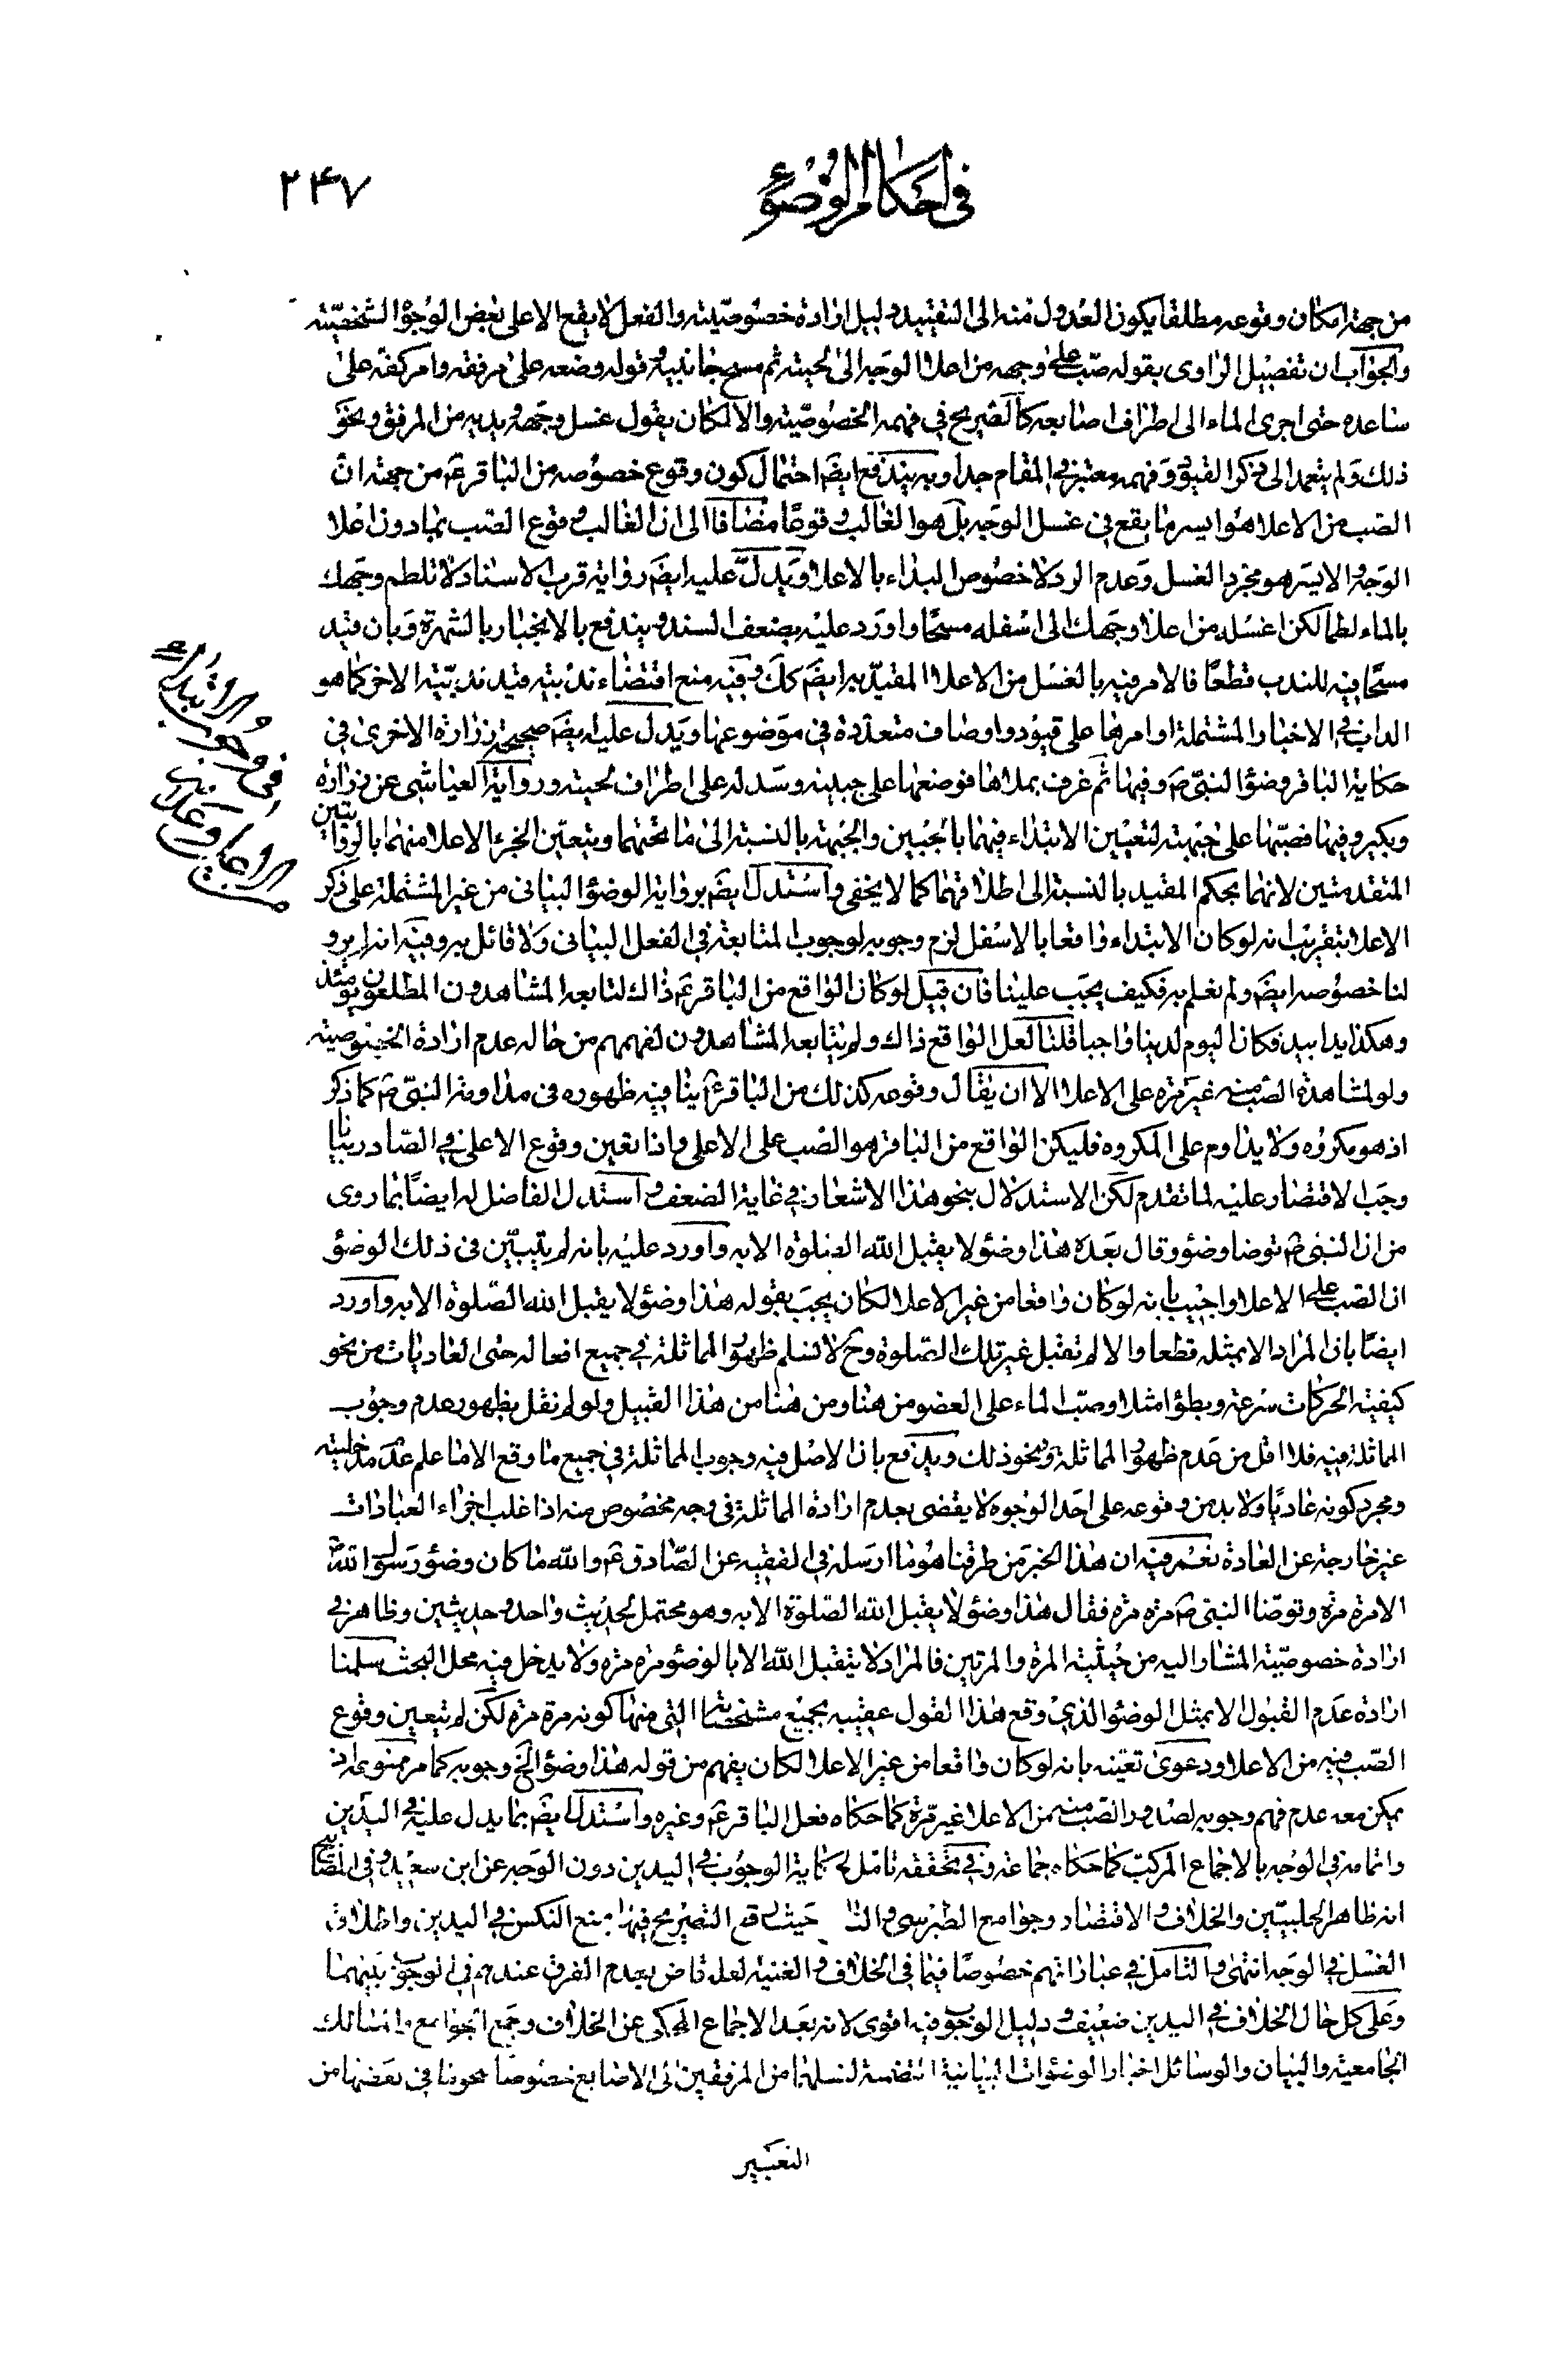 في احكام الوضوء
۲۴۷
من جهة امكان وقوعه مطلقا يكون العدول منه الى التقييد دليل ارادة خصوصيته والفعل لا يقع الا على بعض الوجوه الشخصيته
والجواب ان تفصيل الراوى بقوله صب على وجهه من اعلا الوجه الى لحيته ثم مسح جانبيه قوله وضعه على مرفقه وامر كفه على
ساعده حتى اجرى الماء الى اطراف اصابعه كالصريح في فهمه الخصوصيته والا لكان يقول غسل وجهه ويديه من المرفق ونحو
ذلك ولم يتعمد الى ذكر القيود وفهمه معتبر في المقام جدا وبه يندفع ايضَ احتمال كون وقوع خصوصه من الباقر عم من جهة ان
الصب من الاعلا هو ايسر ما يقع في غسل الوجه بل هو الغالب وقوعًا مضافا الى ان الغالب وقوع الصب بمادون اعلا
الوجه والايسر هو مجرد الغسل وعدم الرد لا خصوص البداء بالاعلا ويدل عليه ايضَ رواية قرب الاسناد لا تلطم وجهك
بالماء لطما لكن اغسله من اعلا وجهك الى اسفله مسحًا واورد عليه بضعف السند ويندفع بالانجبار بالشهرة وبان قيد
مسحًا فيه للندب قطعًا فالامر فيه بالغسل من الاعلا المقيد به ايضَ كك وفيه منع اقتضاء ندبية قيد ندبية الاخر كما هو
الداب في الاخبار المشتملة اوامرها على قيود واوصاف متعددة في موضوعها ويدل عليه ايضَ صحيحة زرارة الاخرى في
حكاية الباقر وضوء النبي صَ وفيها ثم غرف بملاها فوضعها على جبينه وسدله على اطراف لحيته ورواية العياشي عن زرارة
وبكير وفيها فصبها على جبهته لتعيين الابتداء فيهما بالجبين والجبهة بالنسبة الى ما تحتهما ويتعين الجزء الاعلا منهما بالروايتين
المتقدمتين لانهما بحكم المقيد بالنسبة الى اطلاقهما كما لا يخفى واستدل ايضَ برواية الوضوء البيانى من غير المشتملة على ذكر
الاعلا بتقريب انه لو كان الابتداء واقعا بالاسفل لزم وجوبه لوجوب المتابعة في الفعل البيانى ولا قائل به وفيه انه لم يرو
لنا خصوصه ايضَ ولم نعلم به فكيف يجب علينا فان قيل لو كان الواقع من الباقر عم ذاك لتابعه المشاهدون المطلعون يومئذ
وهكذا يدا بيد فكان اليوم لدينا واجبا قلنا لعل الواقع ذاك ولم يتابعه المشاهدون لفهمهم من حاله عدم ارادة الخصوصية
ولو لمشاهدة الصب منه غير مرة على الاعلا الا ان يقال وقوعه كذلك من الباقر عم ينافيه ظهوره في مداومة النبي صَ كما ذكر
اذ هو مكروه ولا يداوم على المكروه فليكن الواقع من الباقر هو الصب على الاعلى واذا تعين وقوع الاعلى في الصادر بيانا
وجب الاقتصار عليه لما تقدم لكن الاستدلال بنحو هذا الاشعار في غاية الضعف واستدل الفاضل له ايضًا بما روى
من ان النبي صَ توضا وضوء وقال بعده هذا وضوء لا يقبل الله الصلوة الا به واورد عليه بانه لم يتبين في ذلك الوضوء
ان الصب على الاعلا واجيب بانه لو كان واقعا من غير الاعلا لكان يجب بقوله هذا وضوء لا يقبل الله الصلوة الا به واورد
ايضًا بان المراد الا بمثله قطعا والا لم تقبل غير تلك الصلوة وح لا نسلم ظهور المماثلة في جميع افعاله حتى العاديات من نحو
كيفية الحركات سرعة وبطوءا مثلا وصب الماء على العضو من هنا ومن هنا من هذا القبيل ولو لم نقل بظهور عدم وجوب
المماثلة فيه فلا اقل من عدم ظهور المماثلة ونحو ذلك ويدفع بان الاصل فيه وجوب المماثلة في جميع ما وقع الا ما علم عدم مدخليته
ومجرد كونه عاديًا ولا بد من وقوعه على احد الوجوه لا يقضى بعدم ارادة المماثلة في وجه مخصوص منه اذ اغلب اجزاء العبادات
غير خارجة عن العادة نعم فيه ان هذا الخبر من طرقنا هو ما ارسله في الفقيه عن الصادق عم والله ما كان وضوء رسول الله صَ
الا مرة مرة وتوضا النبي صَ مرة مرة فقال هذا وضوء لا يقبل الله الصلوة الا به وهو محتمل لحديث واحد وحديثين وظاهر في
ارادة خصوصية المشار اليه من حيثية المرة والمرتين فالمراد لا يتقبل الله الا بالوضوء مرة مرة ولا يدخل فيه محل البحث سلمنا
ارادة عدم القبول الا بمثل الوضوء الذي وقع هذا القول عقيبه بجميع مشخصاته التي منها كونه مرة مرة لكن لم يتعين وقوع
الصب فيه من الاعلا ودعوى تعينه بانه لو كان واقعا من غير الاعلا لكان يفهم من قوله هذا وضوء الخ وجوبه كما مر ممنوعة اذ
يمكن معه عدم فهم وجوبه لصدور الصب منه من الاعلا غير مرة كما حكاه فعل الباقر عم وغيره واستدل ايضَ بما يدل عليه في اليدين
واتمامه في الوجه بالاجماع المركب كما حكاه جماعة وفي تحققه تامل لحكاية الوجوب في اليدين دون الوجه عن ابن سعيد وفي المصابيح
انه ظاهر الحلبيين والخلاف والاقتصاد وجوامع الطبرسي حيث وقع التصريح فيها بمنع النكس في اليدين واطلاق
الغسل في الوجه انتهى والتامل في عباراتهم خصوصًا فيما في الخلاف والغنية لعله قاض بعدم الفرق عندهم في الوجوب بينهما
وعلى كل حال الخلاف في اليدين ضعيف ودليل الوجوب فيه اقوى لانه بعد الاجماع المحكى عن الخلاف وجمع الجوامع والمسالك
الجامعية والبيان والوسائل اخبار الوضوءات البيانية المتضمنة لغسلهما من المرفقين الى الاصابع خصوصًا في بعضها من
التعبير